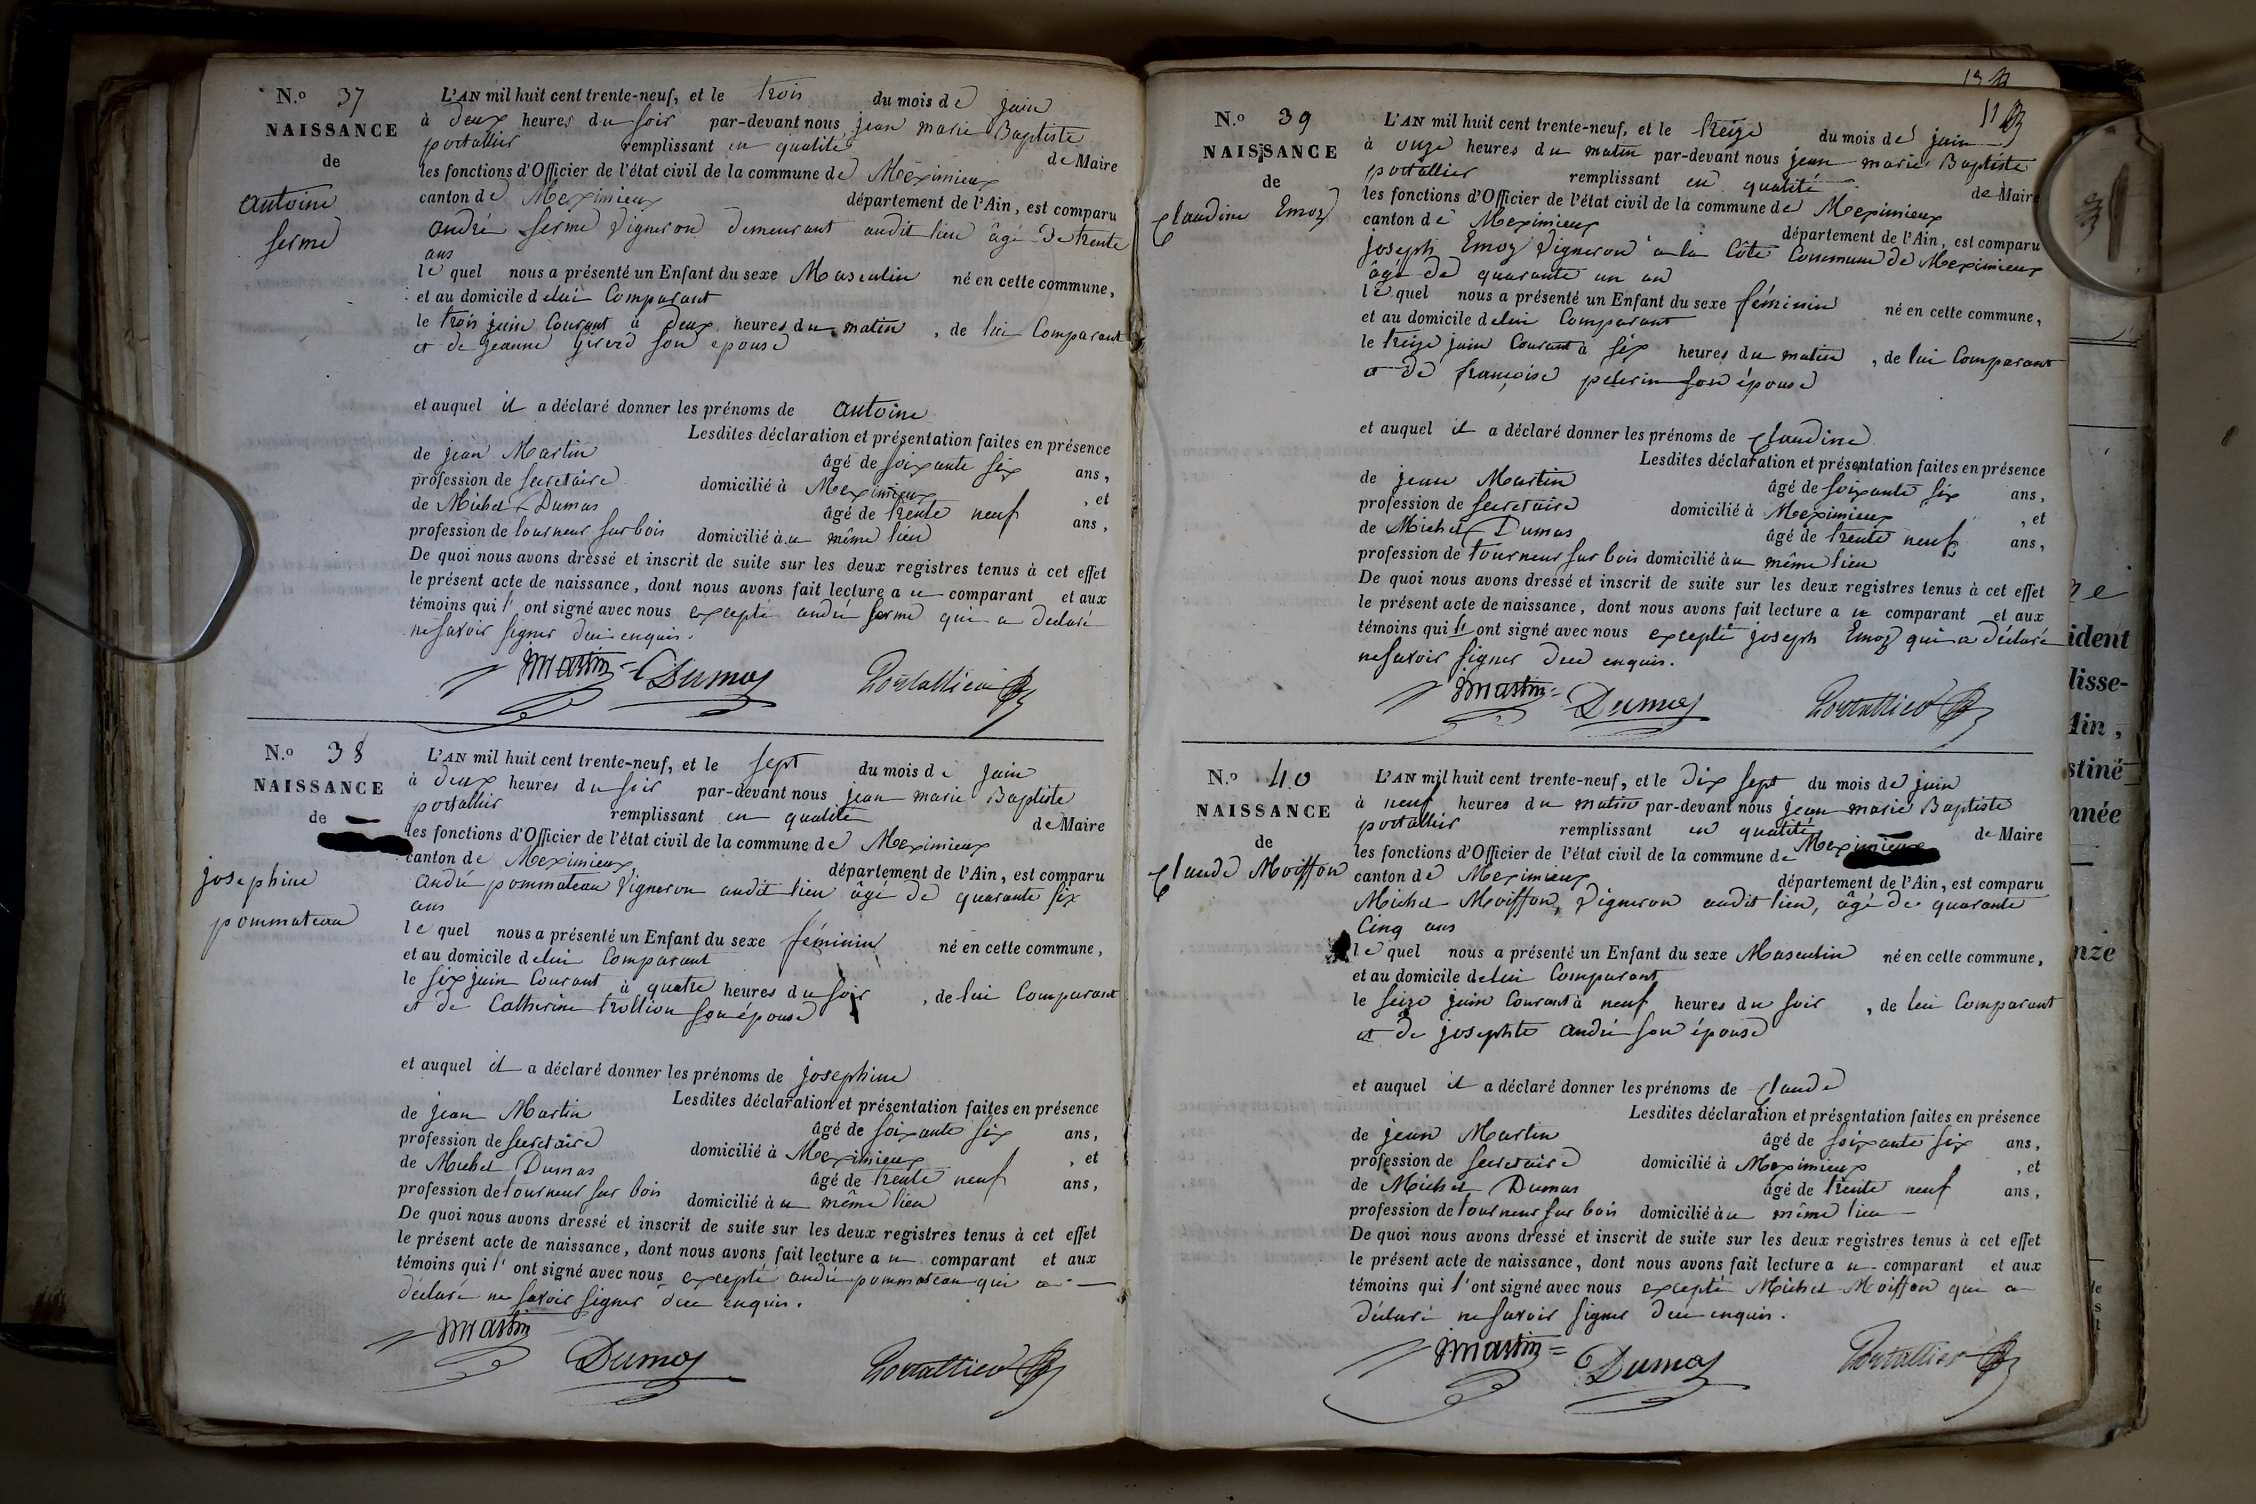 N.o 37
NAISSANCE
de
antoine
serme
L'AN mil huit cent trente-neuf, et le trois du mois de juin
à deux heures du soir par-devant nous jean marie Baptiste
portallier remplissant en qualité de Maire
les fonctions d'Officier de l'état civil de la commune de Meximieux
canton de Meximieux département de l'Ain, est comparu
andré serme Vigneron demeurant audit lieu âgé de trente
ans
le quel nous a présenté un Enfant du sexe Masculin né en cette commune,
et au domicile de lui Comparant
le trois juin Courant à deux heures du matin, de lui Comparant
et de jeanne girerd son epouse
et auquel il a déclaré donner les prénoms de antoine
Lesdites déclaration et présentation faites en présence
de jean Martin âgé de soixante six ans,
profession de secretaire domicilié à Meximieux, et
de Michel Dumas âgé de trente neuf ans,
profession de tourneur sur bois domicilié à u même lieu
De quoi nous avons dressé et inscrit de suite sur les deux registres tenus à cet effet
le présent acte de naissance, dont nous avons fait lecture a u comparant et aux
témoins qui l' ont signé avec nous excepté andré serme qui a declaré
ne savoir signer deu enquis.
jmartin = Dumas Portallier
N.o 38
NAISSANCE
de
josephine
pommateau
L'AN mil huit cent trente-neuf, et le sept du mois de juin
à deux heures du soir par-devant nous jean marie Baptiste
portallier remplissant en qualité de Maire
les fonctions d'Officier de l'état civil de la commune de Meximieux
canton de Meximieux département de l'Ain, est comparu
andré pommateau Vigneron audit lieu âgé de quarante six
ans
le quel nous a présenté un Enfant du sexe féminin né en cette commune,
et au domicile de lui Comparant
le six juin Courant à quatre heures du soir, de lui Comparant
et de Catherine trollion son épouse
et auquel il a déclaré donner les prénoms de josephine
Lesdites déclaration et présentation faites en présence
de jean Martin âgé de soixante six ans,
profession de secretaire domicilié à Meximieux, et
de Michel Dumas âgé de trente neuf ans,
profession de tourneur sur bois domicilié à u même lieu
De quoi nous avons dressé et inscrit de suite sur les deux registres tenus à cet effet
le présent acte de naissance, dont nous avons fait lecture a u comparant et aux
témoins qui l' ont signé avec nous excepté andré pommateau qui a
déclaré ne savoir signer deu enquis.
jmartin Dumas Portallier
N.o 39
NAISSANCE
de
Claudine Emoz
L'AN mil huit cent trente-neuf, et le treize du mois de juin
à onze heures du matin par-devant nous jean marie Baptiste
portallier remplissant en qualité de Maire
les fonctions d'Officier de l'état civil de la commune de Meximieux
canton de Meximieux département de l'Ain, est comparu
joseph Emoz Vigneron à la Côte Commune de Meximieux
âgé de quarante un an
le quel nous a présenté un Enfant du sexe féminin né en cette commune,
et au domicile de lui Comparant
le treize juin Courant à six heures du matin, de lui Comparant
et de françoise pelerin son épouse
et auquel il a déclaré donner les prénoms de Claudine
Lesdites déclaration et présentation faites en présence
de jean Martin âgé de soixante six ans,
profession de secretaire domicilié à Meximieux, et
de Michel Dumas âgé de trente neuf ans,
profession de tourneur sur bois domicilié à u même lieu
De quoi nous avons dressé et inscrit de suite sur les deux registres tenus à cet effet
le présent acte de naissance, dont nous avons fait lecture a u comparant et aux
témoins qui l' ont signé avec nous excepté joseph Emoz qui a déclaré
ne savoir signer deu enquis.
jmartin = Dumas Portallier
N.o 40
NAISSANCE
de
Claude Moiffon
L'AN mil huit cent trente-neuf, et le dix sept du mois de juin
à neuf heures du matin par-devant nous jean marie Baptiste
portallier remplissant en qualité de Maire
les fonctions d'Officier de l'état civil de la commune de Meximieux
canton de Meximieux département de l'Ain, est comparu
Michel Moiffon, Vigneron audit lieu, âgé de quarante
Cinq ans
le quel nous a présenté un Enfant du sexe Masculin né en cette commune,
et au domicile de lui Comparant
le seize juin Courant à neuf heures du soir, de lui Comparant
et de josephte andré son épouse
et auquel il a déclaré donner les prénoms de Claude
Lesdites déclaration et présentation faites en présence
de jean Martin âgé de soixante six ans,
profession de secretaire domicilié à Meximieux, et
de Michel Dumas âgé de trente neuf ans,
profession de tourneur sur bois domicilié à u même lieu
De quoi nous avons dressé et inscrit de suite sur les deux registres tenus à cet effet
le présent acte de naissance, dont nous avons fait lecture a u comparant et aux
témoins qui l'ont signé avec nous excepté Michel Moiffon qui a
déclaré ne savoir signer deu enquis.
jmartin = Dumas Portallier